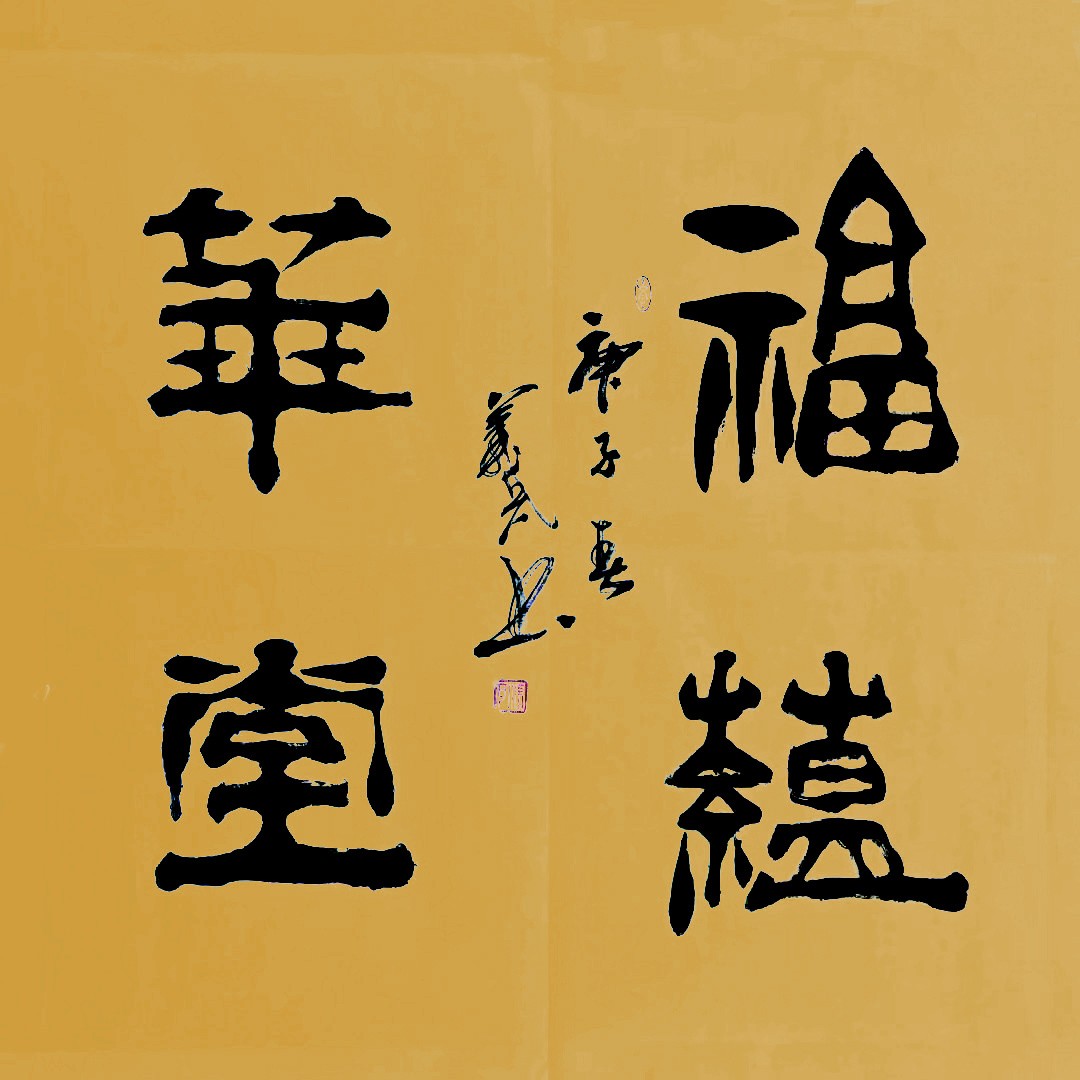 福蘊
華堂
庚子春
義书